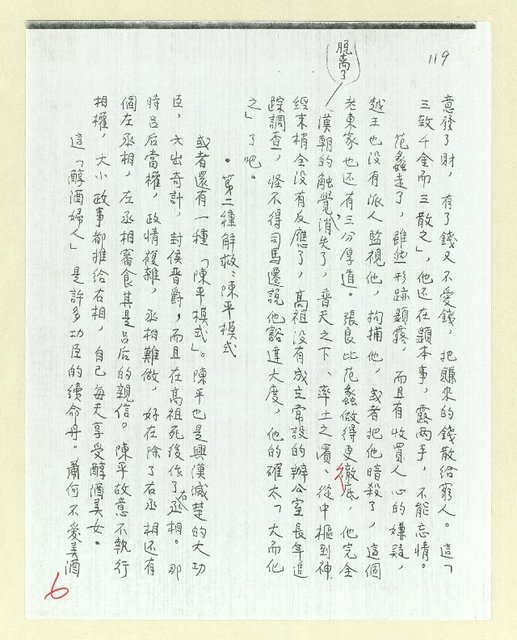 119
意發了財，有了錢又不愛錢，把賺來的錢散給窮人。這「
三致千金而三散之」，他還在顯本事，露兩手，不能忘情。
范蠡走了，雖然形跡顯露，而且有收買人心的嫌疑，
越王也沒有派人監視他，拘捕他，或者把他暗殺了，這個
老東家也還有三分厚道。張良比范蠡做得更徹底，他完全
脫离了
漢朝的触覺，消失了，普天之下、率土之濱、從中樞到神
經末梢全沒有反應了，高祖没有成立常設的辦公室長年追
踪調查，怪不得司馬遷説他豁達大度，他的確太「大而化
之」了吧。
·第二種解救：陳平模式
或者還有一種「陳平模式」。陳平也是興漢滅楚的大功
臣，六出奇計，封侯晋爵，而且在高祖死後作了右丞相。那
時呂后當權，政情複雜，丞相難做，好在除了右丞相还有
個左丞相，左丞相審食其是呂后的親信。陳平故意不執行
相權，大小政事都推給右相，自己每天享受醇酒美女。
這「醇酒婦人」是許多功臣的續命丹。蕭何不愛美酒
6